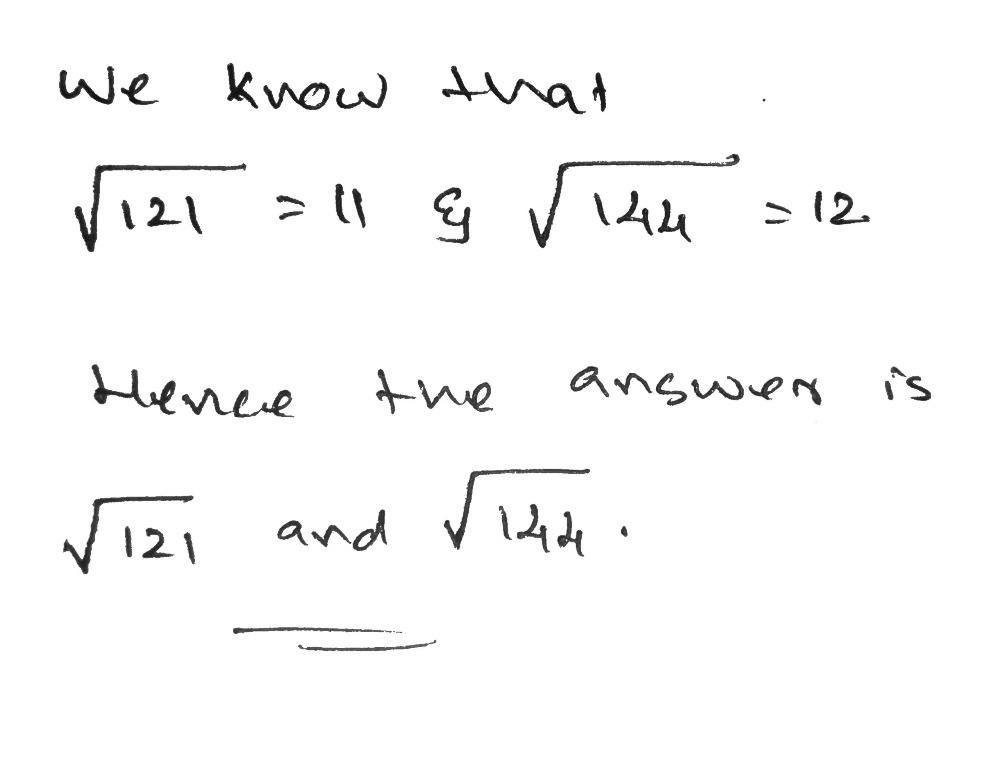 We know that
√121 = 11 & √144 = 12
Hence the answer is
√121 and √144.